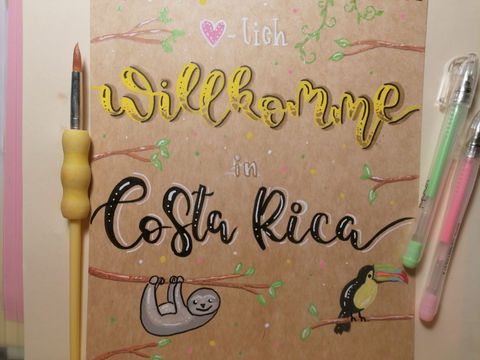 ♥-lich
Willkomme
in
Costa Rica